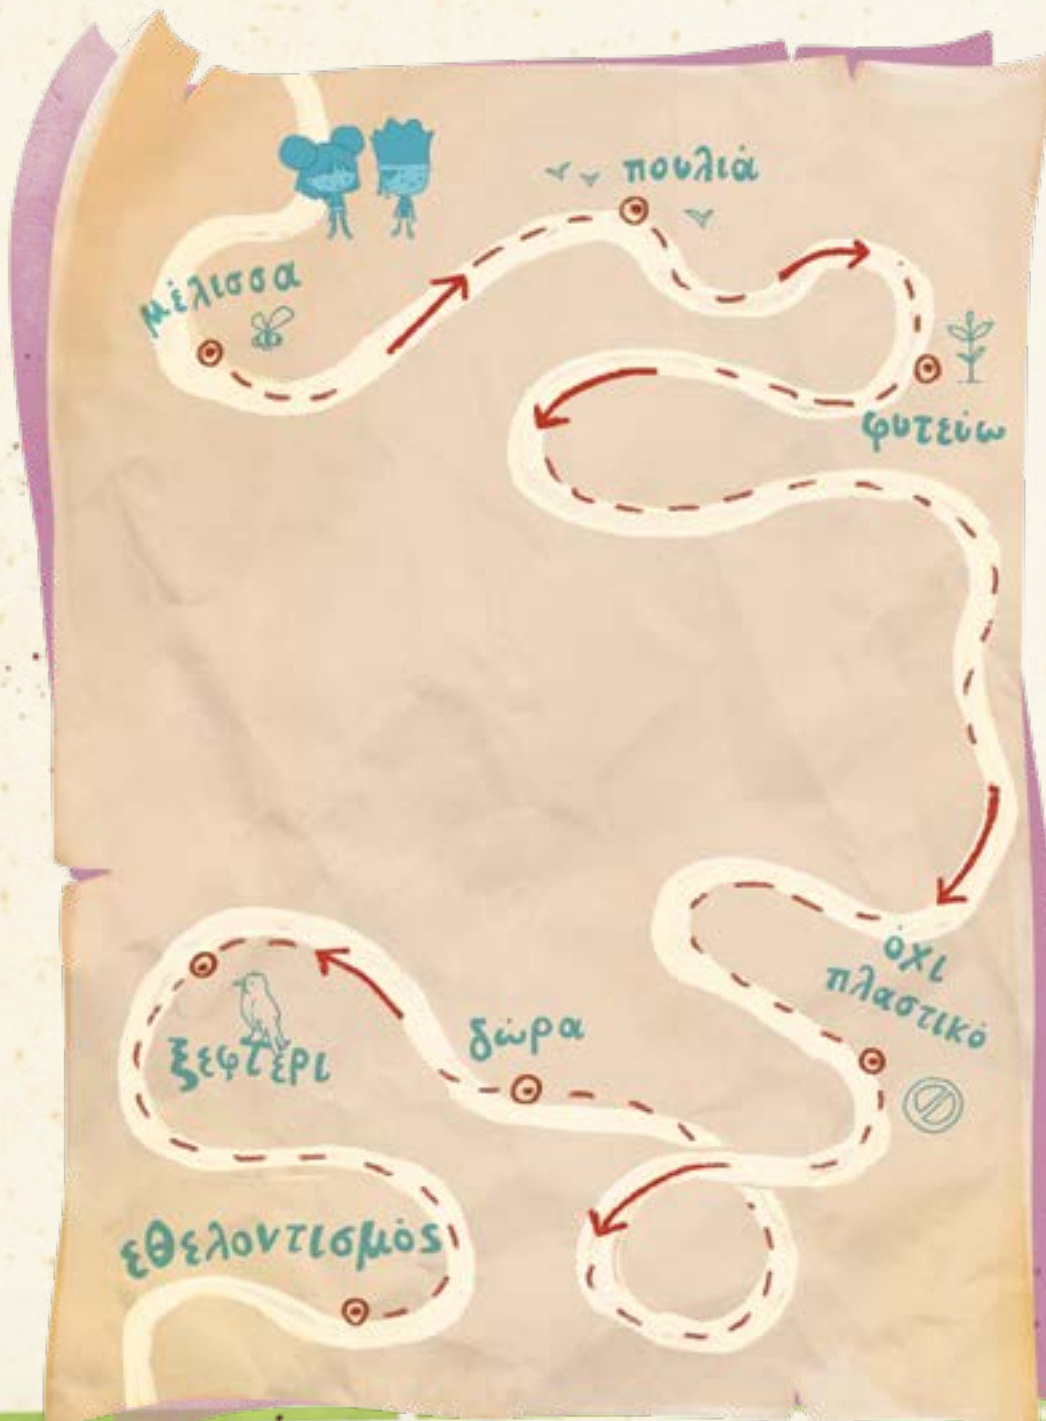 μέλισσα
πουλιά
φυτεύω
όχι
πλαστικό
δώρα
ξεφτέρι
εθελοντισμός